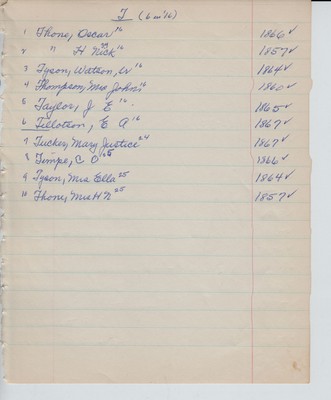 T (6 in '16)
1 Thone, Oscar 16 1866 ✓
2 " H Nick 16 1857 ✓
3 Tyson, Watson, Sr 16 1864 ✓
4 Thompson, Mrs John 16 1860 ✓
5 Taylor, J E 16 1865 ✓
6 Tillotson, E A 16 1867 ✓
7 Tucker, Mary Justice 24 1867 ✓
8 Timpe, C C 25 1866 ✓
9 Tyson, Mrs Ella 25 1864 ✓
10 Thone, Mrs H N 25 1857 ✓